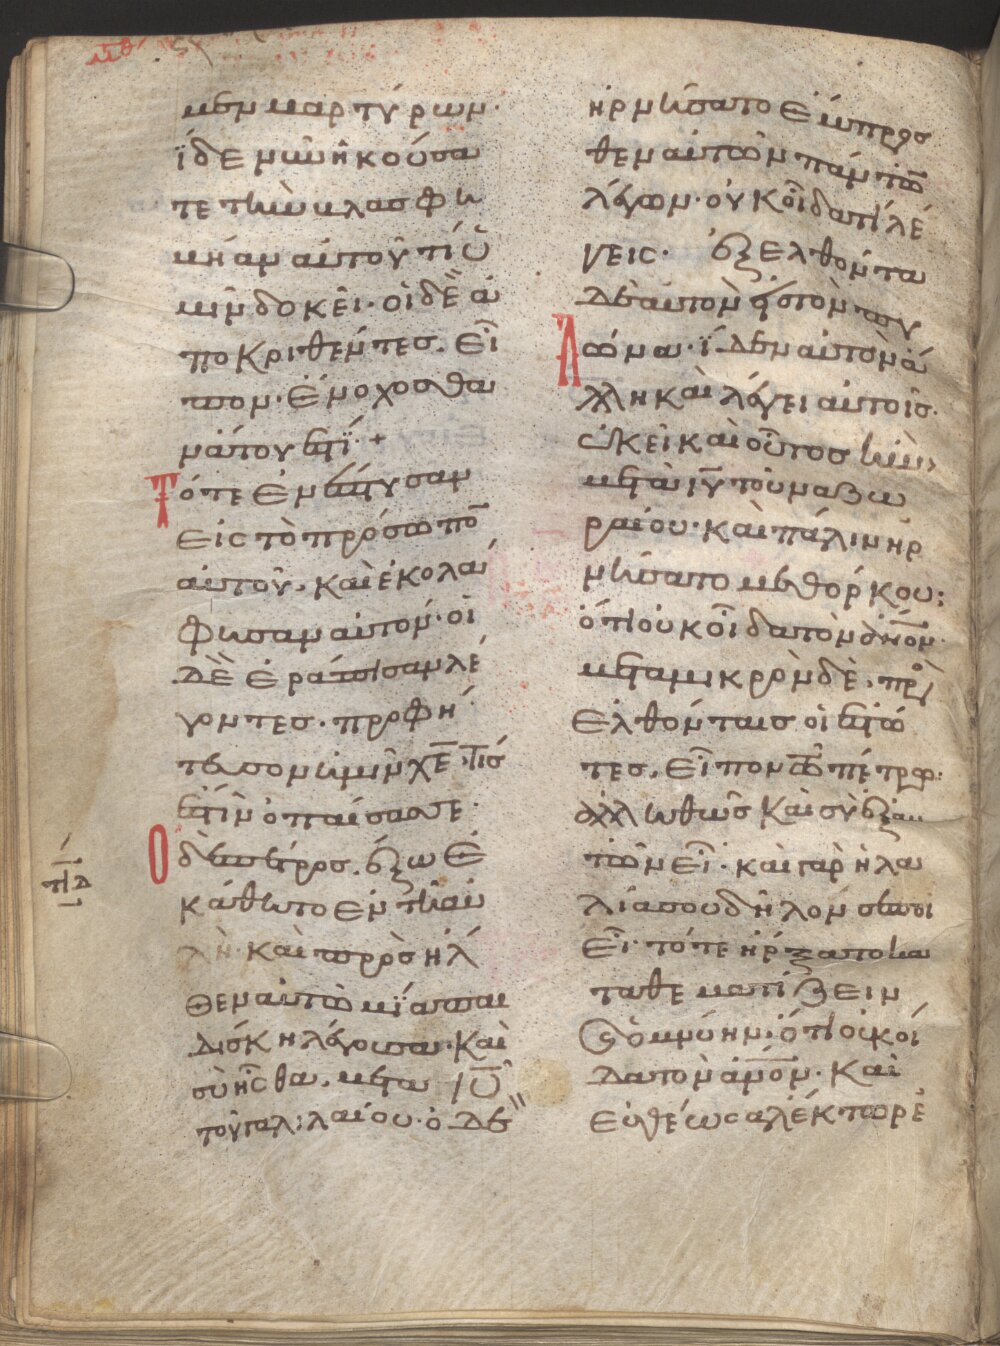 μεν μαρτύρων·
ἴδε νῦν ἠκούσα
τε τὴν βλασφη
μίαν αὐτοῦ τί ὑ
μῖν δοκεῖ· οἱ δὲ ἀ
ποκριθέντες. εἶ
πον· ἔνοχος θα
νάτου ἐστί· +
Τότε ἐνέπτυσαν
εἰς τὸ πρόσωπον
αὐτοῦ. καὶ ἐκολά
φησαν αὐτόν· οἱ
δὲ ἐράπισαν λέ
γοντες. προφή
τευσον ἡμῖν χε̅ τίς
ἐστιν ὁ παίσας σε·
Ο δὲ πέτρος. ἔξω ἐ
κάθητο ἐν τῇ αὐ
λῇ· καὶ προσῆλ
θεν αὐτῷ μία παι
δίσκη λέγουσα· καὶ
σὺ ἦσθα. μετὰ ιυ̅
τοῦ γαλιλαίου· ὁ δὲ
ἠρνήσατο ἔμπροσ
θεν αὐτῶν πάντων
λέγων· οὐκ οἶδα τί λέ
γεις· ἐξελθόντα
δὲ αὐτὸν εἰς τὸν πυ
λῶνα· ἴδεν αὐτὸν ἄ
λλη καὶ λέγει αὐτοῖς·
ἐκεῖ καὶ οὗτος ἦν
μετὰ ιυ̅ τοῦ ναζω
ραίου· καὶ πάλιν ἠρ
νήσατο μεθ όρκου;
ὅτι οὐκ οἶδα τὸν α̅νον·
μετὰ μικρὸν δὲ. προ
ελθόντες οἱ ἑστῶ
τες. εἶπον τῷ πέτρῳ·
ἀληθῶς καὶ σὺ ἐξ αὐ
τῶν εἶ· καὶ γὰρ ἡ λα
λιά σου δῆλόν σε ποι
εῖ· τότε ἤρξατο κα
ταθεματίζειν
καὶ ὀμνύην· ὅτι οὐκ οἶ
δα τὸν α̅νον· καὶ
εὐθέως ἀλέκτωρ ἐ